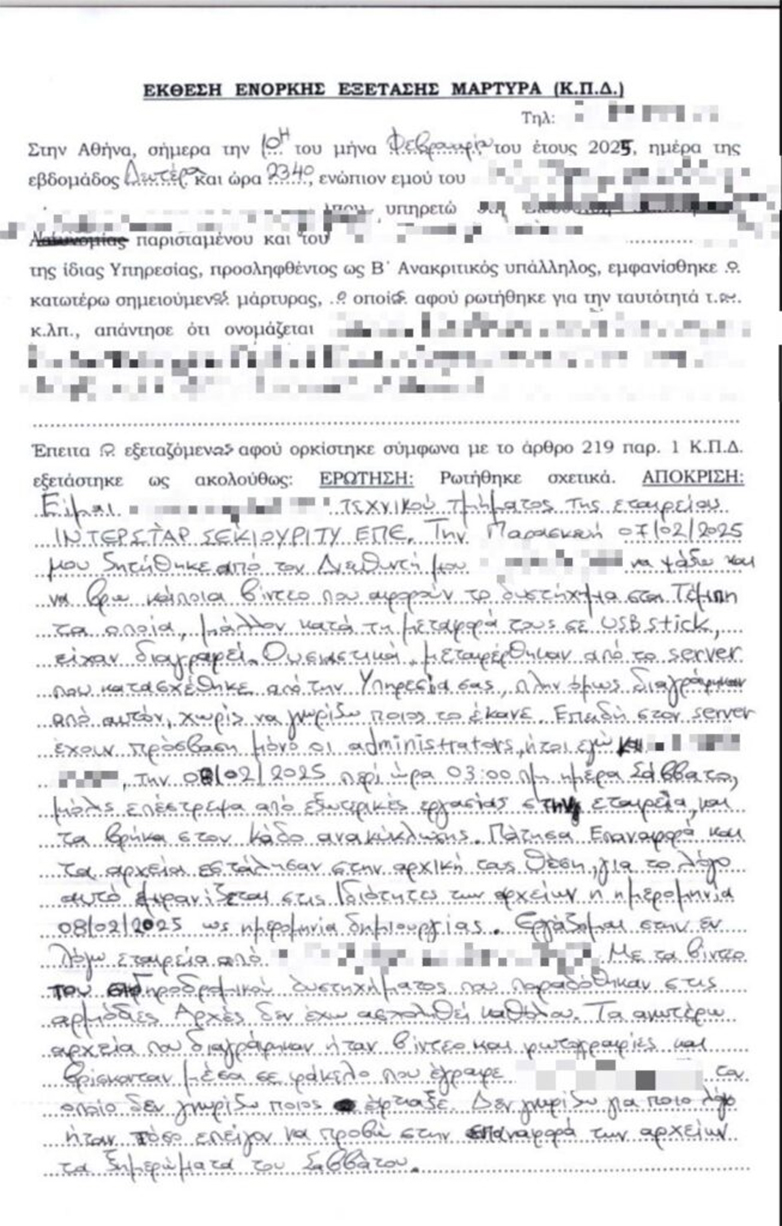 ΕΚΘΕΣΗ ΕΝΟΡΚΗΣ ΕΞΕΤΑΣΗΣ ΜΑΡΤΥΡΑ (Κ.Π.Δ.)
Τηλ:
Στην Αθήνα, σήμερα την 10η του μήνα Φεβρουαρίου του έτους 2025, ημέρα της
εβδομάδος Δευτέρα και ώρα 2340, ενώπιον εμού του
που υπηρετώ
παρισταμένου και του
της ίδιας Υπηρεσίας, προσληφθέντος ως Β΄ Ανακριτικός υπάλληλος, εμφανίσθηκε ο
κατωτέρω σημειούμενος μάρτυρας, ο οποίος αφού ρωτήθηκε για την ταυτότητά του
κ.λπ., απάντησε ότι ονομάζεται
Έπειτα ο εξεταζόμενος αφού ορκίστηκε σύμφωνα με το άρθρο 219 παρ. 1 Κ.Π.Δ.
εξετάστηκε ως ακολούθως: ΕΡΩΤΗΣΗ: Ρωτήθηκε σχετικά. ΑΠΟΚΡΙΣΗ:
Είμαι τεχνικού τμήματος της εταιρείας
ΙΝΤΕΡΣΤΑΡ ΣΕΚΙΟΥΡΙΤΥ ΕΠΕ. Την Παρασκευή 07/02/2025
μου ζητήθηκε από τον Διευθυντή μου να ψάξω και
να βρω κάποια βίντεο που αφορούν το δυστήχημα στα Τέμπη
τα οποία, μάλλον κατά τη μεταφορά τους σε USB stick,
είχαν διαγραφεί. Ουσιαστικά μεταφέρθηκαν από το server
που κατασχέθηκε από την Υπηρεσία σας, πλην όμως διαγράφηκαν
από αυτόν, χωρίς να γνωρίζω ποιος το έκανε. Επειδή στον server
έχουν πρόσβαση μόνο οι administrators, ήτοι εγώ και
, την 08/02/2025 περί ώρα 03:00 πμ ημέρα Σάββατο,
μόλις επέστρεψα από εξωτερικές εργασίες στην εταιρεία, και
τα βρήκα στον κάδο ανακύκλωσης. Πάτησα Επαναφορά και
τα αρχεία εστάλησαν στην αρχική τους θέση, για το λόγο
αυτό εμφανίζεται στις Ιδιότητες των αρχείων η ημερομηνία
08/02/2025 ως ημερομηνία δημιουργίας. Εργάζομαι στην εν
λόγω εταιρεία από Με τα βίντεο
του σιδηροδρομικού δυστηχήματος που παραδόθηκαν στις
αρμόδιες Αρχές δεν έχω ασχοληθεί καθόλου. Τα ανωτέρω
αρχεία που διαγράφηκαν ήταν βίντεο και φωτογραφίες και
βρίσκονταν μέσα σε φάκελο που έγραφε τον
οποίο δεν γνωρίζω ποιος έφτιαξε. Δεν γνωρίζω για ποιο λόγο
ήταν τόσο επείγον να προβώ στην επαναφορά των αρχείων
τα ξημερώματα του Σαββάτου.